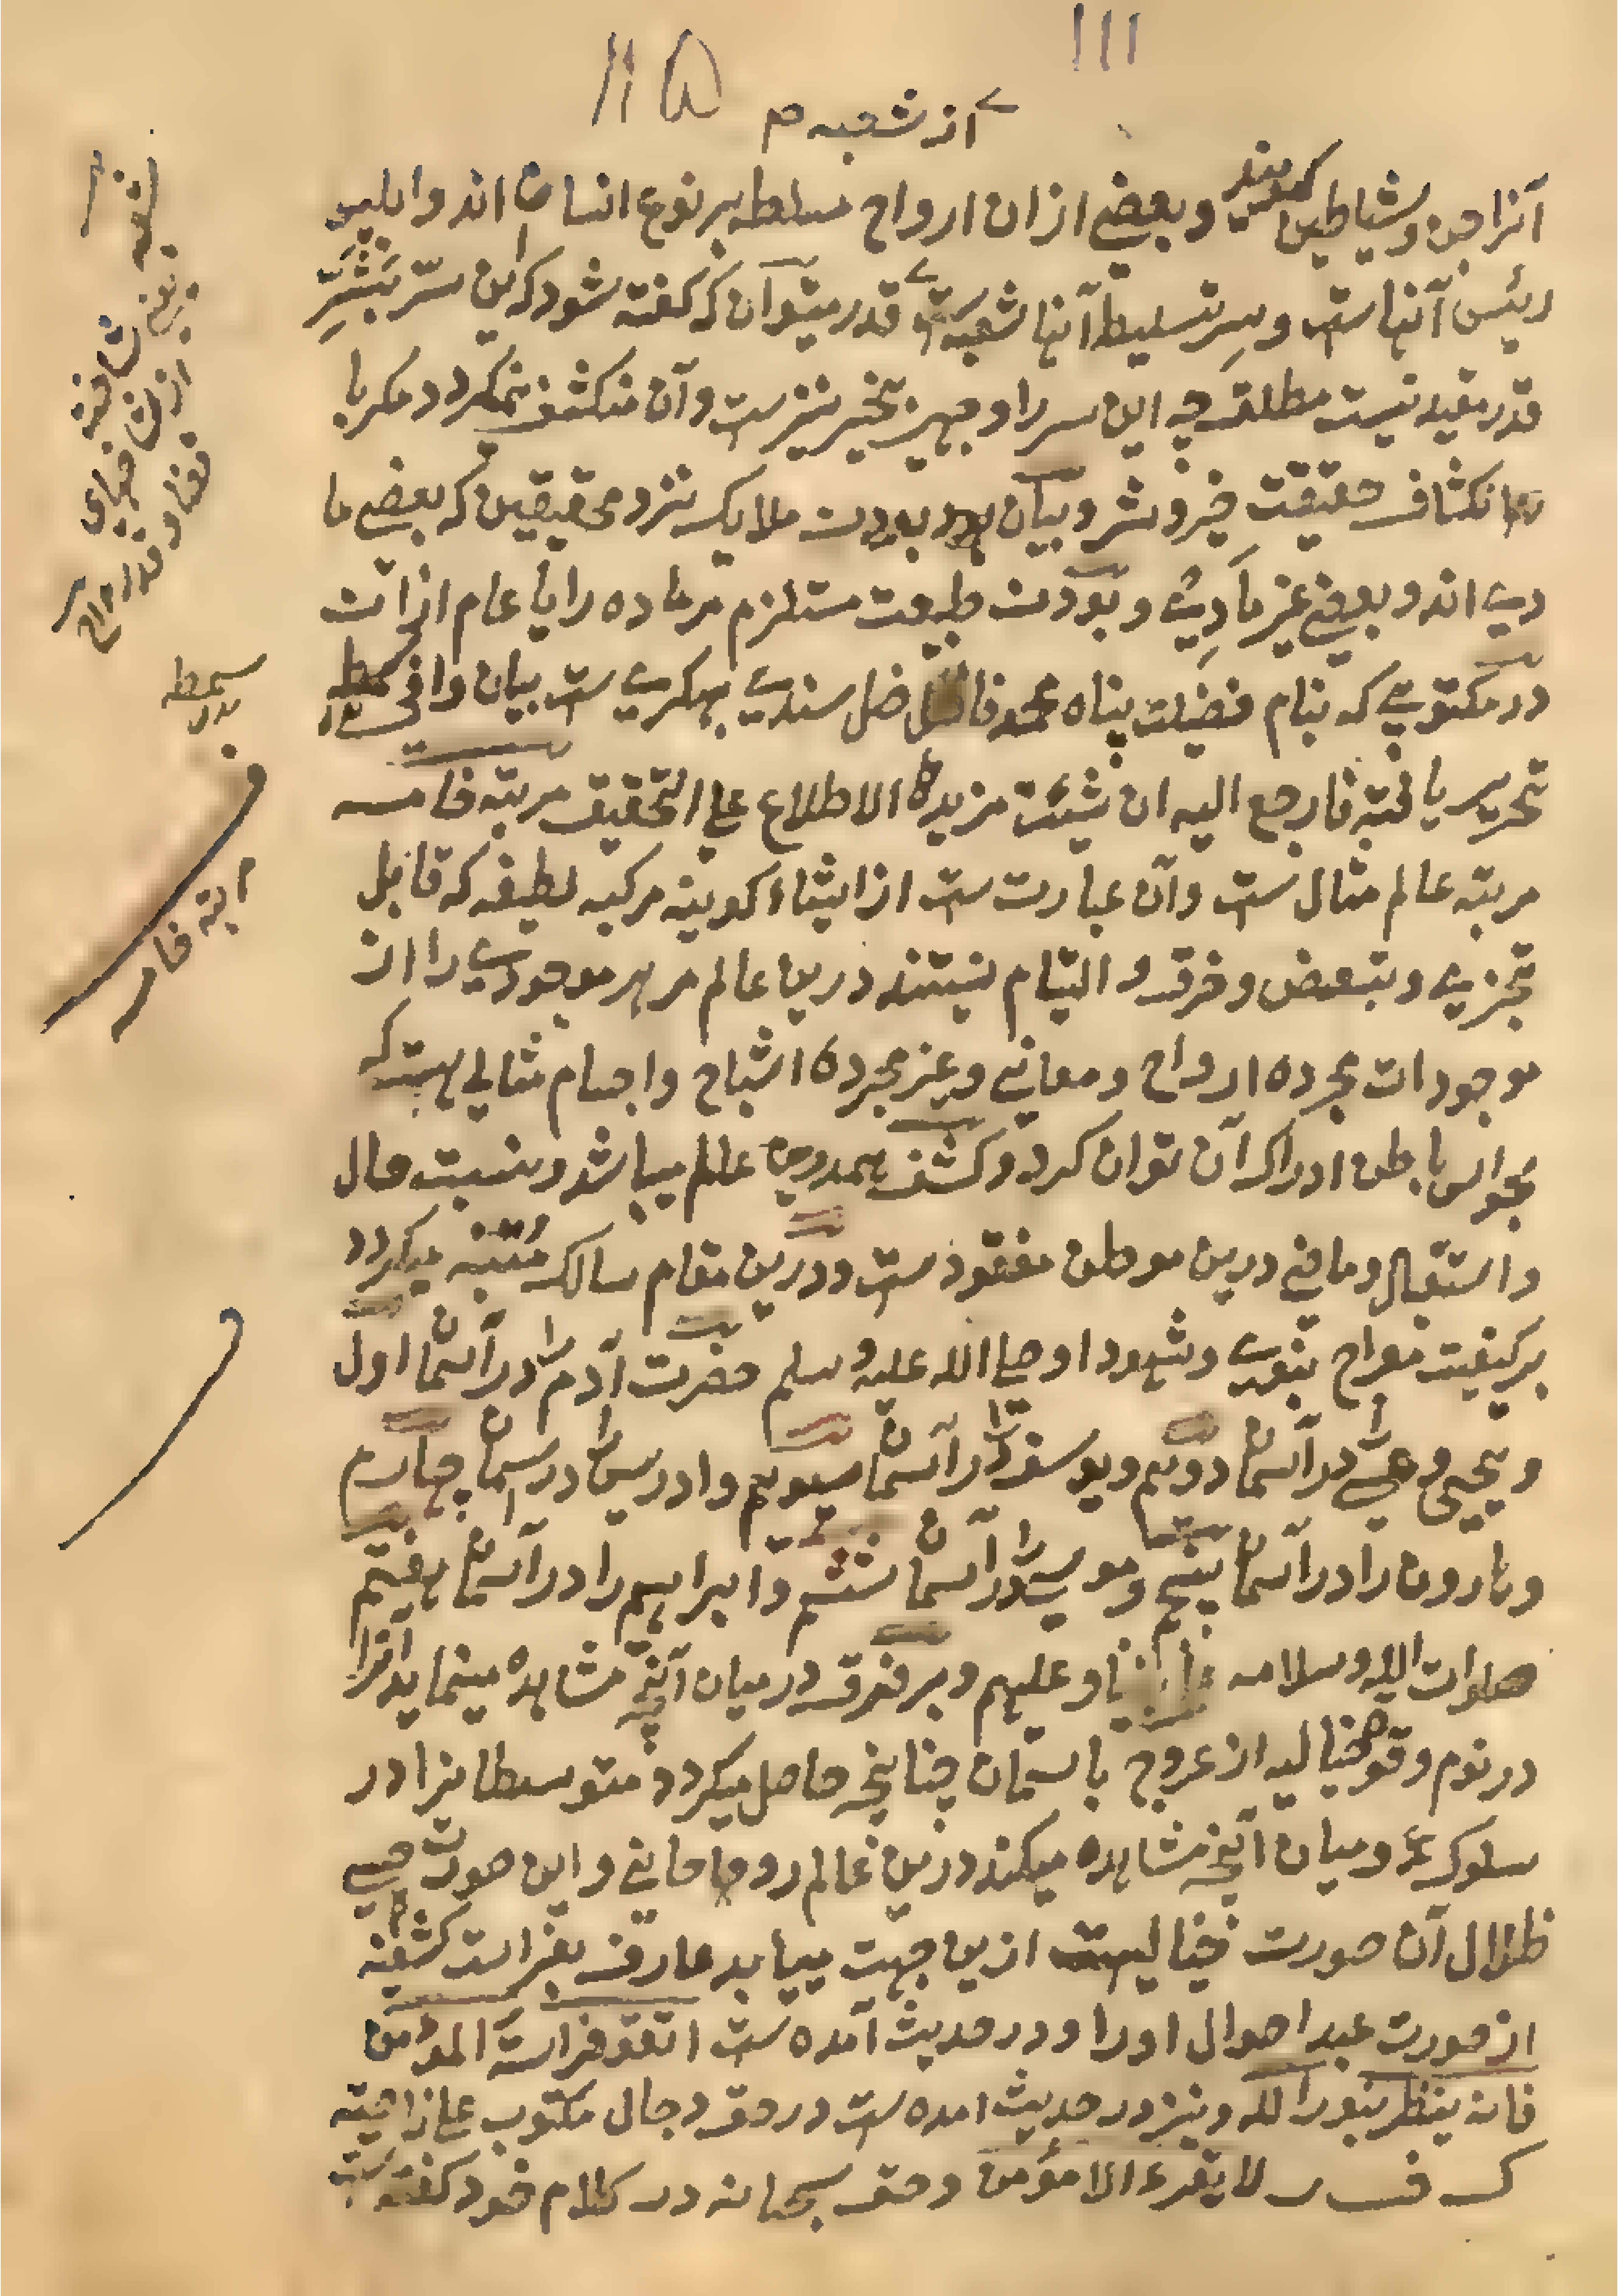 ١١١
١١۵
از شعبه م
آنرا جن و شیاطین گویند و بعضے ازان ارواح مسلطه بر نوع انسان اند و ابلیس
رئیس آنهاست و سر تسلیط آنها شعبه قدر میتوان که گفته شود که این سر بشر
قدر مقید نیست مطلق چه این سر را وجهین تخییر نیز ست و آن منکشف نمیگردد مگر با
انکشاف حقیقت خیر و شر و بیان بودن ملایک نزد محققین که بعضے ما
دی اند و بعضے غیر مادی و بودن طبیعت مستلزم مر ماده را یا عام ازان
در مکتوبی که بنام فضیلت پناه محمد فاضل سندے بهکرے ست بیان وافی
تحریر یافته فارجع الیه ان شئت مزید الاطلاع علے التحقیق مرتبه خامسه
مرتبه عالم مثال ست و آن عبارت ست از اشیاء کونیه مرکبه لطیفه که قابل
تجزیے و تبعض و خرق و التیام نیستند درین عالم مر هر موجودے را از
موجودات مجرده ارواح و معانے و غیر مجرده اشباح و اجسام مثالے هست که
بحواس باطن ادراک آن توان کرد و کشف همدرین عالم میباشد و نسبت حال
و استقبال و ماضے درین موطن مفقود ست و درین مقام سالک متنبه میگردد
بر کیفیت معراج نبوے و شهود او صلے الله علیه وسلم حضرت آدم را در آسمان اول
و یحیی و عیسے را در آسمان دویم و یوسف را در آسمان سیوم و ادریس را در آسمان چهارم
و هارون را در آسمان پنجم و موسے را در آسمان ششم و ابراهیم را در آسمان هفتم
صلوات الله و سلامه علے نبینا و علیهم و بر فرق درمیان آنچه مشاهده مینماید آنرا
در نوم و قوة خیالیه از عروج باسمان چنانچه حاصل میگردد متوسطانرا در
سلوک و میان آنچه مشاهده میکند درین عالم روحانے و این صورت حسے
ظلال آن صورت خیالیست ازین جهت مییابد عارف بفراست کشفیه
از صورت عبد احوال او را و در حدیث آمده ست اتقو فراسة المؤمن
فانه ینظر بنور الله و نیز در حدیث امده ست در حق دجال مکتوب علے ناصیته
ک ف ر لا یقرء الا مؤمن و حق سبحانه در کلام خود گفته ست
مرتبه خامسه